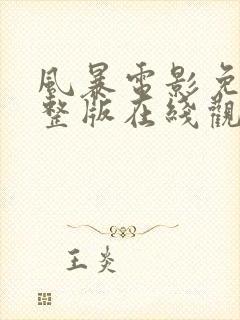 風暴電影免
整版在綫觀
王炎